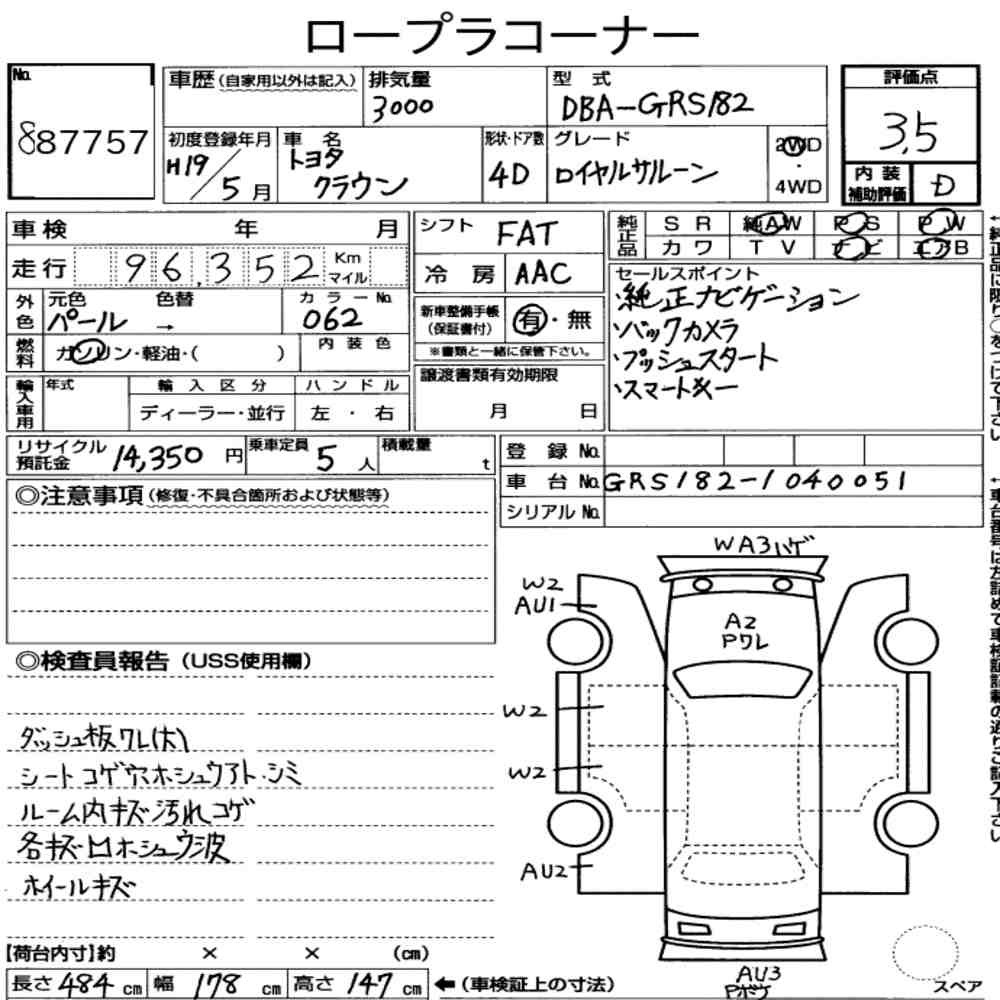 ロープラコーナー
No.
887757
車歴(自家用以外は記入)
排気量
3000
型 式
DBA-GRS182
評価点
3.5
初度登録年月
H19/5月
車 名
トヨタ
クラウン
形状・ドア数
4D
グレード
ロイヤルサルーン
2WD
・
4WD
内 装
補助評価
D
車検 年 月
走行 96,352 Km マイル
シフト FAT
冷 房 AAC
純正品
S R 純AW P S P W
カ ワ T V ナ ビ エアB
外色
元色 色替
パール →
カラーNo.
062
燃料
ガソリン・軽油・( )
内 装 色
新車整備手帳
(保証書付)
有・無
※書類と一緒に保管下さい。
譲渡書類有効期限
月 日
セールスポイント
・純正ナビゲーション
・バックカメラ
・プッシュスタート
・スマートキー
輸入車用
年式
輸 入 区 分
ディーラー・並行
ハ ン ド ル
左 ・ 右
リサイクル
預託金 14,350 円
乗車定員 5 人
積載量 t
登 録 No.
車 台 No. GRS182-1040051
シリアル No.
◎注意事項(修復・不具合箇所および状態等)
◎検査員報告(USS使用欄)
ダッシュ板ワレ(大)
シートコゲ穴ホシュウアト・シミ
ルーム内キズ汚れコゲ
各キズ凹ホシュウ波
ホイールキズ
WA3ハゲ
W2
AU1
A2
Pワレ
W2
W2
AU2
AU3
Pボケ
スペア
【荷台内寸】約 × × (cm)
長さ 484 cm 幅 178 cm 高さ 147 cm
←(車検証上の寸法)
←純正品に限り○をつけて下さい
←車台番号は左詰めで車検証記載の通りご記入下さい